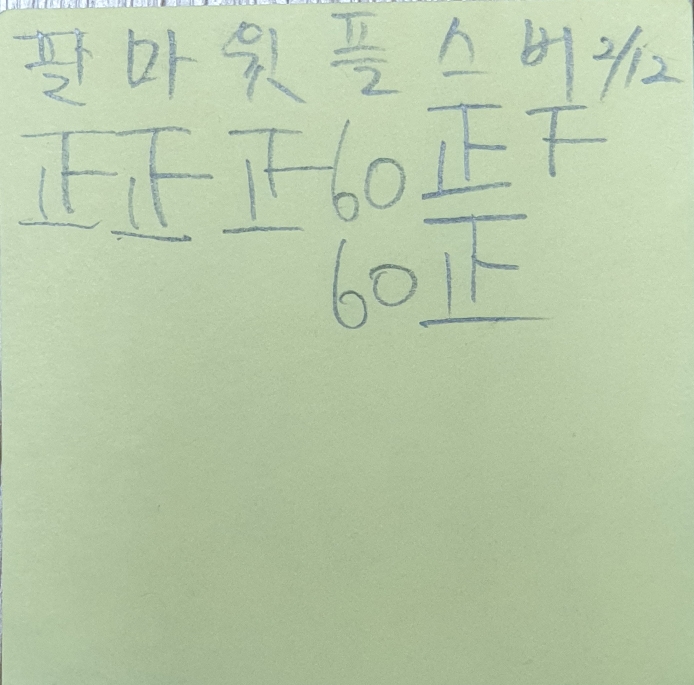 팔 마 윗 플 스 버 2/12
正 正 正 60 正 下
60 正